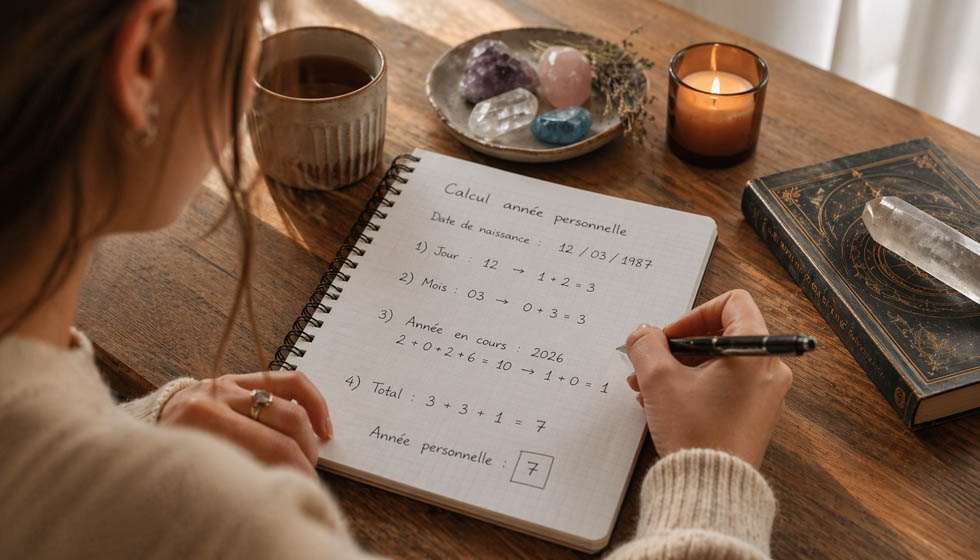 Calcul année personnelle
Date de naissance : 12 / 03 / 1987
1) Jour : 12 → 1 + 2 = 3
2) Mois : 03 → 0 + 3 = 3
3) Année en cours : 2026
2 + 0 + 2 + 6 = 10 → 1 + 0 = 1
4) Total : 3 + 3 + 1 = 7
Année personnelle : 7